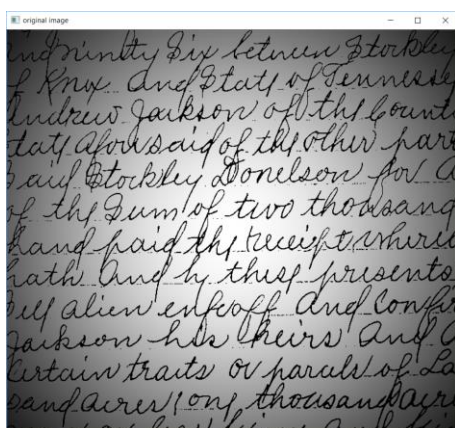 original image
indninty Six between Stockley
of Knox and State of Tennessee
Andrew Jackson of the Count
tate aforesaid of the other part
said Stockley Donelson for a
of the Sum of two thousand
hand paid the receipt where
hath And by these presents
sell alien enfeoff and Confir
Jackson his heirs And a
certain traits or parcels of La
sand acres one thousand acre